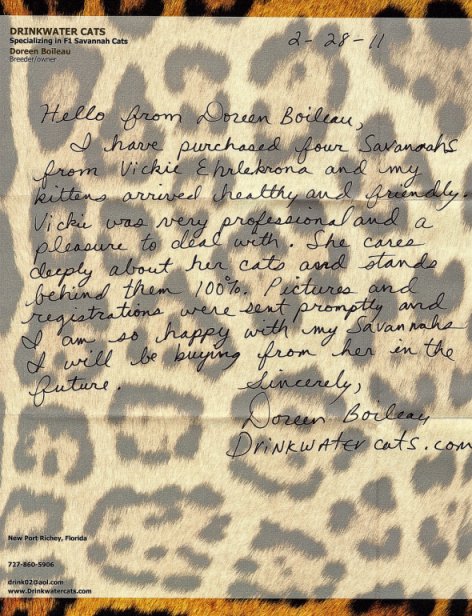 DRINKWATER CATS
Specializing in F1 Savannah Cats
Doreen Boileau
Breeder/owner
2-28-11
Hello from Doreen Boileau,
I have purchased four Savannahs
from Vickie Ehrlekrona and my
kittens arrived healthy and friendly.
Vickie was very professional and a
pleasure to deal with. She cares
deeply about her cats and stands
behind them 100%. Pictures and
registrations were sent promptly and
I am so happy with my Savannahs
I will be buying from her in the
future.
Sincerely,
Doreen Boileau
DRINKWATER CATS.com
New Port Richey, Florida
727-860-5906
drink02@aol.com
www.Drinkwatercats.com